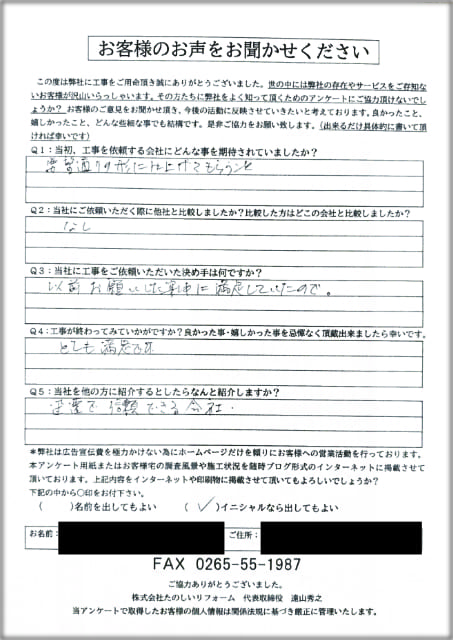 お客様のお声をお聞かせください
この度は弊社に工事をご用命頂き誠にありがとうございました。世の中には弊社の存在やサービスをご存知な
いお客様が沢山いらっしゃいます。その方たちに弊社をよく知って頂くためのアンケートにご協力頂けないでし
ょうか？お客様のご意見をお聞かせ頂き、今後の活動に反映させていきたいと考えております。良かったこと、
嬉しかったこと、どんな些細な事でも結構です。是非ご協力をお願い致します。（出来るだけ具体的に書いて頂
ければ幸いです）
Q1：当初、工事を依頼する会社にどんな事を期待されていましたか？
要望通りの形に仕上げてもらうこと
Q2：当社にご依頼いただく際に他社と比較しましたか？比較した方はどこの会社と比較しましたか？
なし
Q3：当社に工事をご依頼いただいた決め手は何ですか？
以前お願いした事に満足していたので。
Q4：工事が終わってみていかがですか？良かった事・嬉しかった事を忌憚なく頂戴出来ましたら幸いです。
とても満足です
Q5：当社を他の方に紹介するとしたらなんと紹介しますか？
で信頼できる会社.
＊弊社は広告宣伝費を極力かけない為にホームページだけを頼りにお客様への営業活動を行っております。
本アンケート用紙またはお客様宅の調査風景や施工状況を随時ブログ形式のインターネットに掲載させて
頂いております。上記内容をインターネットや印刷物に掲載させて頂いてもよろしいでしょうか？
下記の中から○印をお付下さい。
（　　）名前を出してもよい　（✓）イニシャルなら出してもよい
お名前：　ご住所：
FAX 0265-55-1987
ご協力ありがとうございました。
株式会社たのしいリフォーム　代表取締役　遠山秀之
当アンケートで取得したお客様の個人情報は関係法規に基づき厳正に管理いたします。